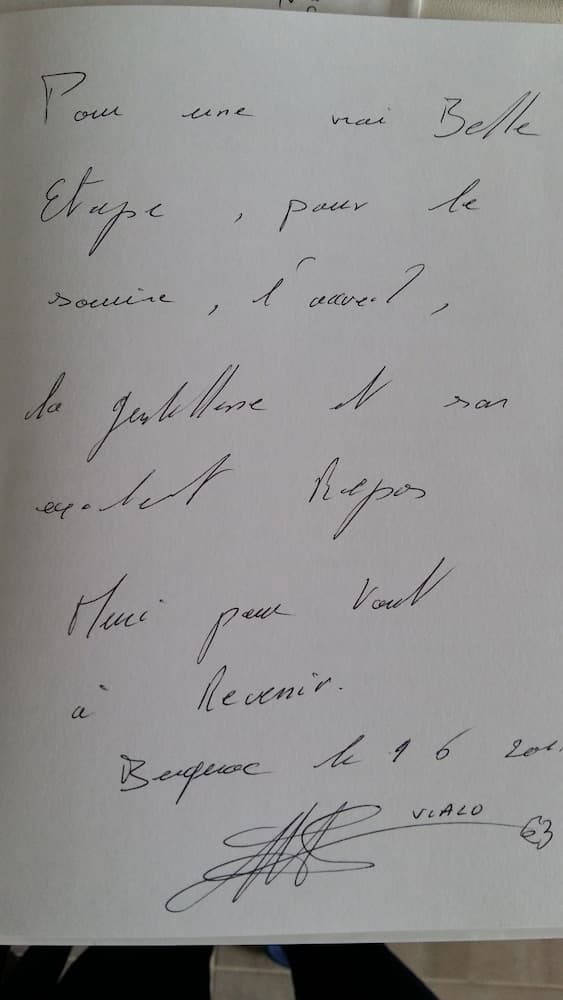 Pour une vrai Belle
Etape, pour le
sourire, l'accueil,
la gentillesse et son
excellent Repas
Merci pour tout
à Revenir.
le 9 6
VIALO
63